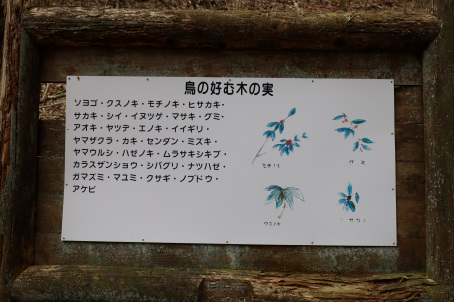 鳥の好む木の実
ソヨゴ・クスノキ・モチノキ・ヒサカキ・
サカキ・シイ・イヌツゲ・マサキ・グミ・
アオキ・ヤツデ・エノキ・イイギリ・
ヤマザクラ・カキ・センダン・ミズキ・
ヤマウルシ・ハゼノキ・ムラサキシキブ・
カラスザンショウ・シバグリ・ナツハゼ・
ガマズミ・マユミ・クサギ・ノブドウ・
アケビ
モチノキ
グミ